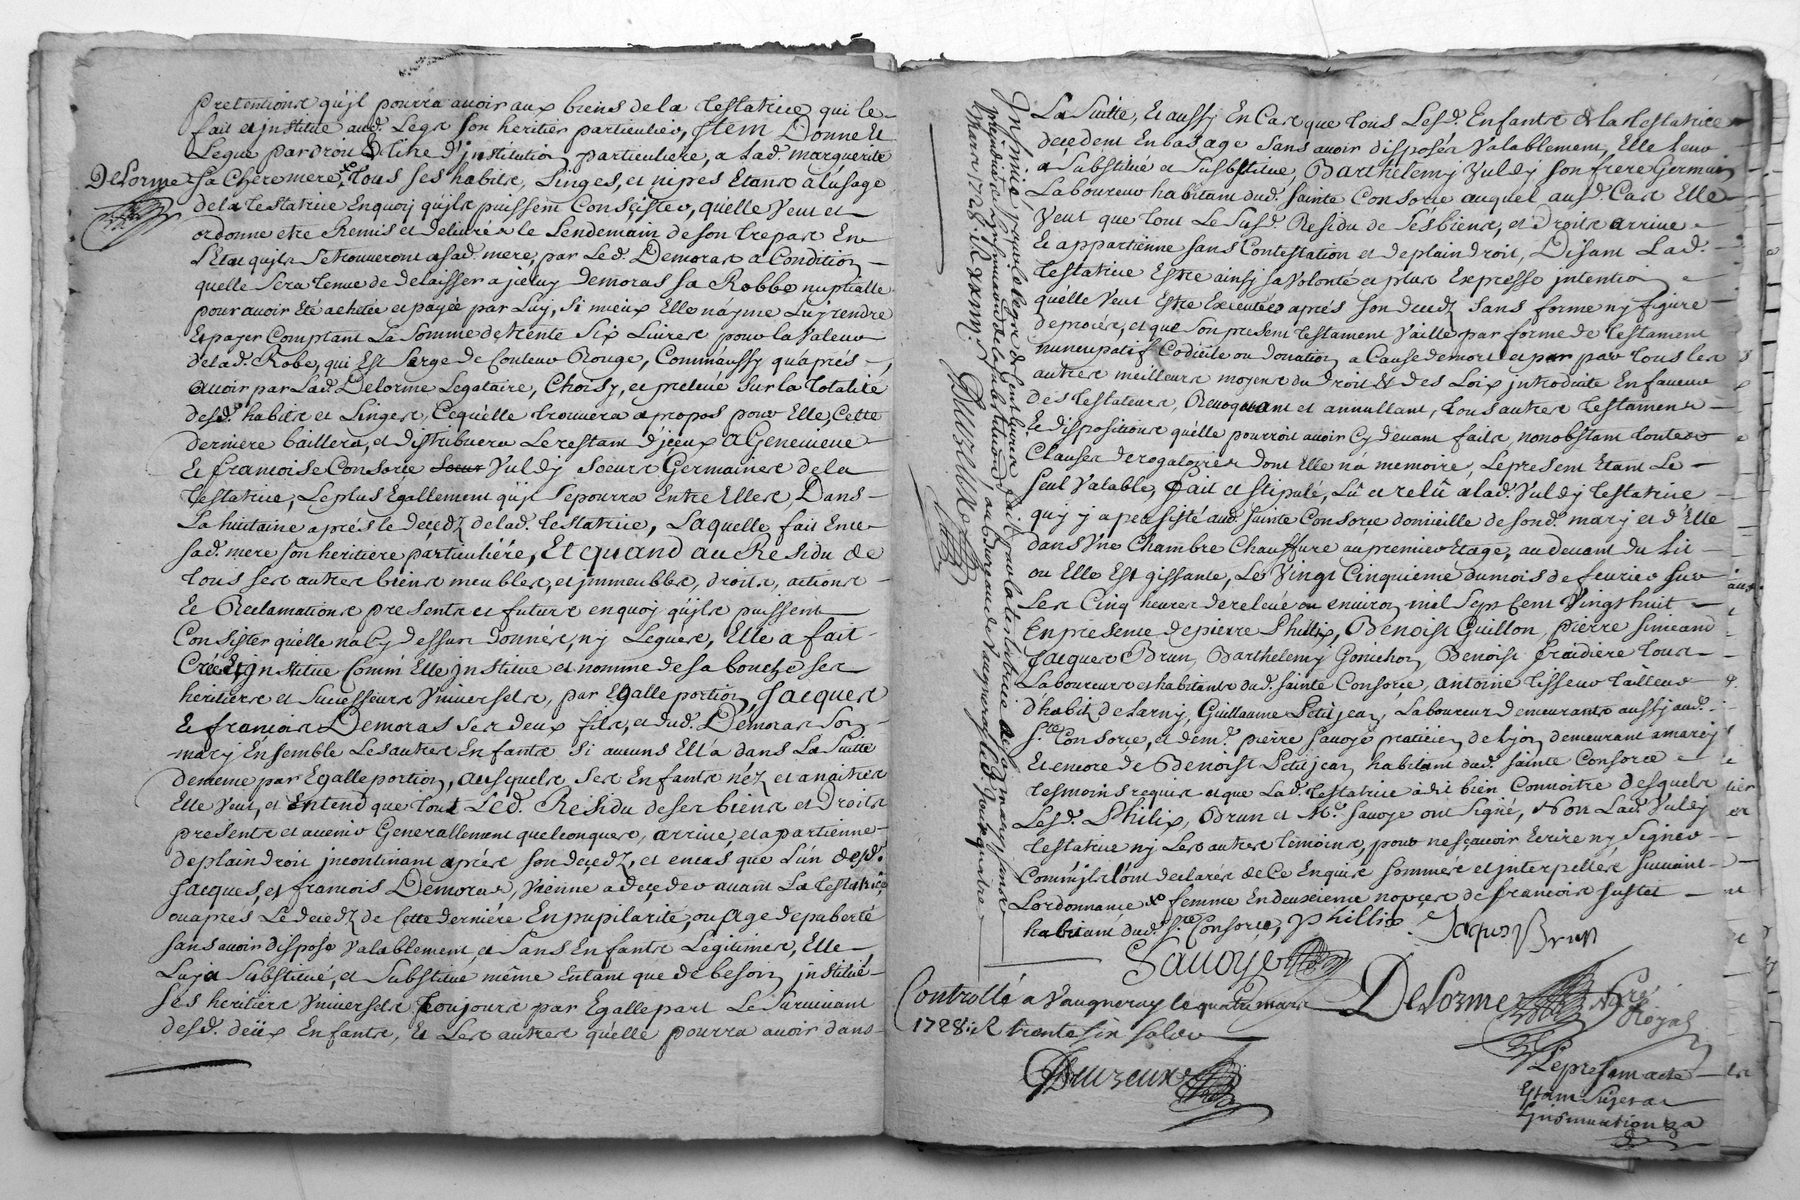 pretentions qu'jl pourra avoir aux biens de la testatrice qui le
fait et jnstitue aud. Legs son heritier particulier, Jtem Donne Et
Legue par droit & titre d'jnstitution particuliere, a Lad. marguerite
Delorme sa Chere mere, tous ses habits, Linges, et nipes Etans a L'usage
de la testatrice En quoj qu'jls puissent Consçister, quelle Veut et
ordonne etre Remis et delivrés le Lendemain de son trepas En
L'Etat qu'jls se trouveront a sad. mere, par Led. Demoras a Condition
quelle sera tenue de delaisser a jceluy demoras sa Robbe nuptialle
pour avoir Eté achetée et payée par Luy, si mieux Elle n'ayme Luy rendre
Et payer Comptant La somme de trente six Livres pour la Valeur
de lad. Robe, qui Est sarge de Couleur Rouge, Comm'aussy qu'aprés
avoir par Lad. Delorme Legataire, Choisy, et prelevé sur la totalité
desd. habits et Linges, Ce qu'elle trouvera a propos pour Elle, Cette
derniere baillera, et distribuera Le restant d'jceux a Genevieve
Et francoise Consorce Vuldy soeurs Germaines de la
testatrice, Le plus Egallement qu'jl se pourra Entre Elles, Dans
La huitaine aprés le deçedz de lad. testatrice, Laquelle fait Encor
sad. mere son heritiere particuliére, Et quand au Residu de
tous ses autres biens meubles, et jmmeubles, droits, actions
Et Reclamations presents et futurs en quoj qu'jls puissent
Consister qu'elle n'a Cy dessus donnés, ny Legués, Elle a fait
Créé Et jnstitue Comm'Elle jnstitue et nomme de sa bouche ses
heritiers et Successeurs Vniversels, par Egalle portion, Jacques
Et francois Demoras ses deux fils, et dud. Demoras son
mary Ensemble Les autres Enfants si aucuns Ell'a dans La suitte
de meme par Egalle portion, ausquels ses Enfants néz et a naitre
Elle Veut, et Entend que tout Led. Residu de ses biens et Droits
presents et avenir Generallement quelconques, arrive, et apartienne
de plain droit jncontinant aprés son deçedz, et en cas que L'un desd.
Jacques, et francois Demoras, Vienne a deçeder avant La testatrice
ou aprés Le deçedz de Cette derniére En pupilarité, ou Age de puberté
sans avoir dispose Valablement, et sans Enfants Legitimes, Elle
Luy a Substitué, et Substitue même Entant que de besoin jnstitue
ses heritiers Vniversels toujours par Egalle part Le survivant
desd. deux Enfants, Et Les autres qu'elle pourra avoir dans
La Suitte, Et aussy En Cas que tous Lesd. Enfants de la testatrice
deçedent En bas age sans avoir disposés Valablement, Elle Leur
a Substitué et Substitue, Barthelemy Vuldy son frere Germain
Laboureur habitant dud. Sainte Consorce auquel aud. Cas Elle
Veut que tout Le susd. Residu de ses biens, et Droits arrive
Et appartienne sans Contestation et de plain droit, Disant Lad.
testatrice Estre ainsy sa Volonté et plus Expresse jntention
quélle Veut Estre Executée aprés son decedz sans forme ny figure
de procés, et que son present testament Vaille par forme de testament
nuncupatif Codicile ou donation a Cause de mort et par tous les
autres meilleurs moyens du droit & des Loix jntroduits En faveur
des testateurs, Revoquant et annullant, tous autres testamens
Et dispositions quélle pourroit avoir Cy devant faits, nonobstant toutes
Clauses derogatoires dont Elle n'a memoire, Le present Etant Le
seul Valable, fait et stipulé, Lû et relû a lad. Vuldy testatrice
quy y a persisté aud. sainte Consorce domicille de sond. mary et d'Elle
dans Vne Chambre Chauffure au premier Etage, au devant du Lit
ou Elle Est gissante, Le Vingt Cinquieme du mois de fevrier sur
Les Cinq heures de relevée ou environ mil sept Cent Vingt huit
En presence de pierre Phillix, Benoist Guillon pierre simeand
Jacques Brun, Barthelemy Gonichon, Benoist fraidiere tous
Laboureurs et habitants dud. sainte Consorce, antoine tisseur tailleur
d'habit de Larny, Guillaume Petitjean, Laboureur demeurants aussy aud.
Ste. Consorce, et de mr. pierre Savoye praticien de Lyon demeurant a marcy
Et encore de Benoist Petitjean habitant dud. sainte Consorce
tesmoins requis et que Lad. testatrice a dit bien Connoitre desquels
Lesd. Philix, Brun et Mr. Savoye ont signé, Non Lad. Vuldy
testatrice ny Les autres témoins, pour ne sçavoir Ecrire ny Signer
Comm'jls l'ont declarés de Ce Enquis sommés et jnterpellés suivant
L'ordonnance & femme En deuxieme nopces de francois Justet
habitant dud. Ste. Consorce, Phillix. Jaques Brun
Savoye
Delorme
Nre
Royal
Controllé a Vaugneray le quatre mars
1728 trente six solds
Duzeux
Le present acte
Etant sujet a
Jnsinuation